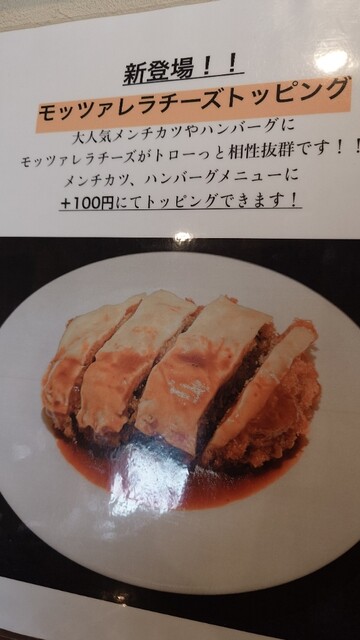 新登場！！
モッツァレラチーズトッピング
大人気メンチカツやハンバーグに
モッツァレラチーズがトローっと相性抜群です！！
メンチカツ、ハンバーグメニューに
+100円にてトッピングできます！